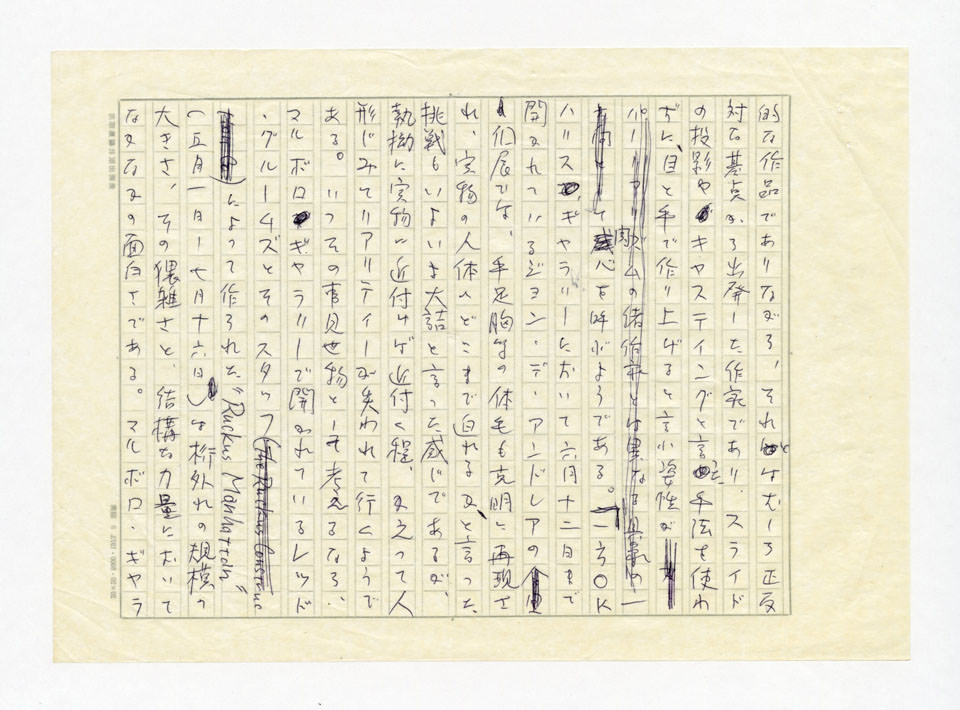 的な作品でありながら、それとはむしろ正反
対な基点から出発した作家であり、スライド
の投影やキャスティングと言った手法を使わ
ずに、目と手で作り上げると言う姿性が
パーリアリズムの諸作家とは異なる
て感心を呼ぶようである。一方OK
ハリス・ギャラリーにおいて六月十二日まで
開かれているジョン・デ・アンドレアの
個展では、手足胸等の体毛も克明に再現さ
れ、実物の人体へどこまで迫れるかと言った
挑戦もいよいよ大詰と言った感じであるが、
執拗に実物に近付けば近付く程、かえって人
形じみてリアリティーが失われて行くようで
ある。いっその事見世物として考えるなら、
マルボロ・ギャラリーで開かれているレッド
・グルームズとそのスタッフ(the Ruckus Construc
)によって作られた“Ruckus Manhattan”
(五月一日−七月十六日)は桁外れの規模の
大きさ、その猥雑さと、結構な力量において
なかなかの面白さである。マルボロ・ギャラ